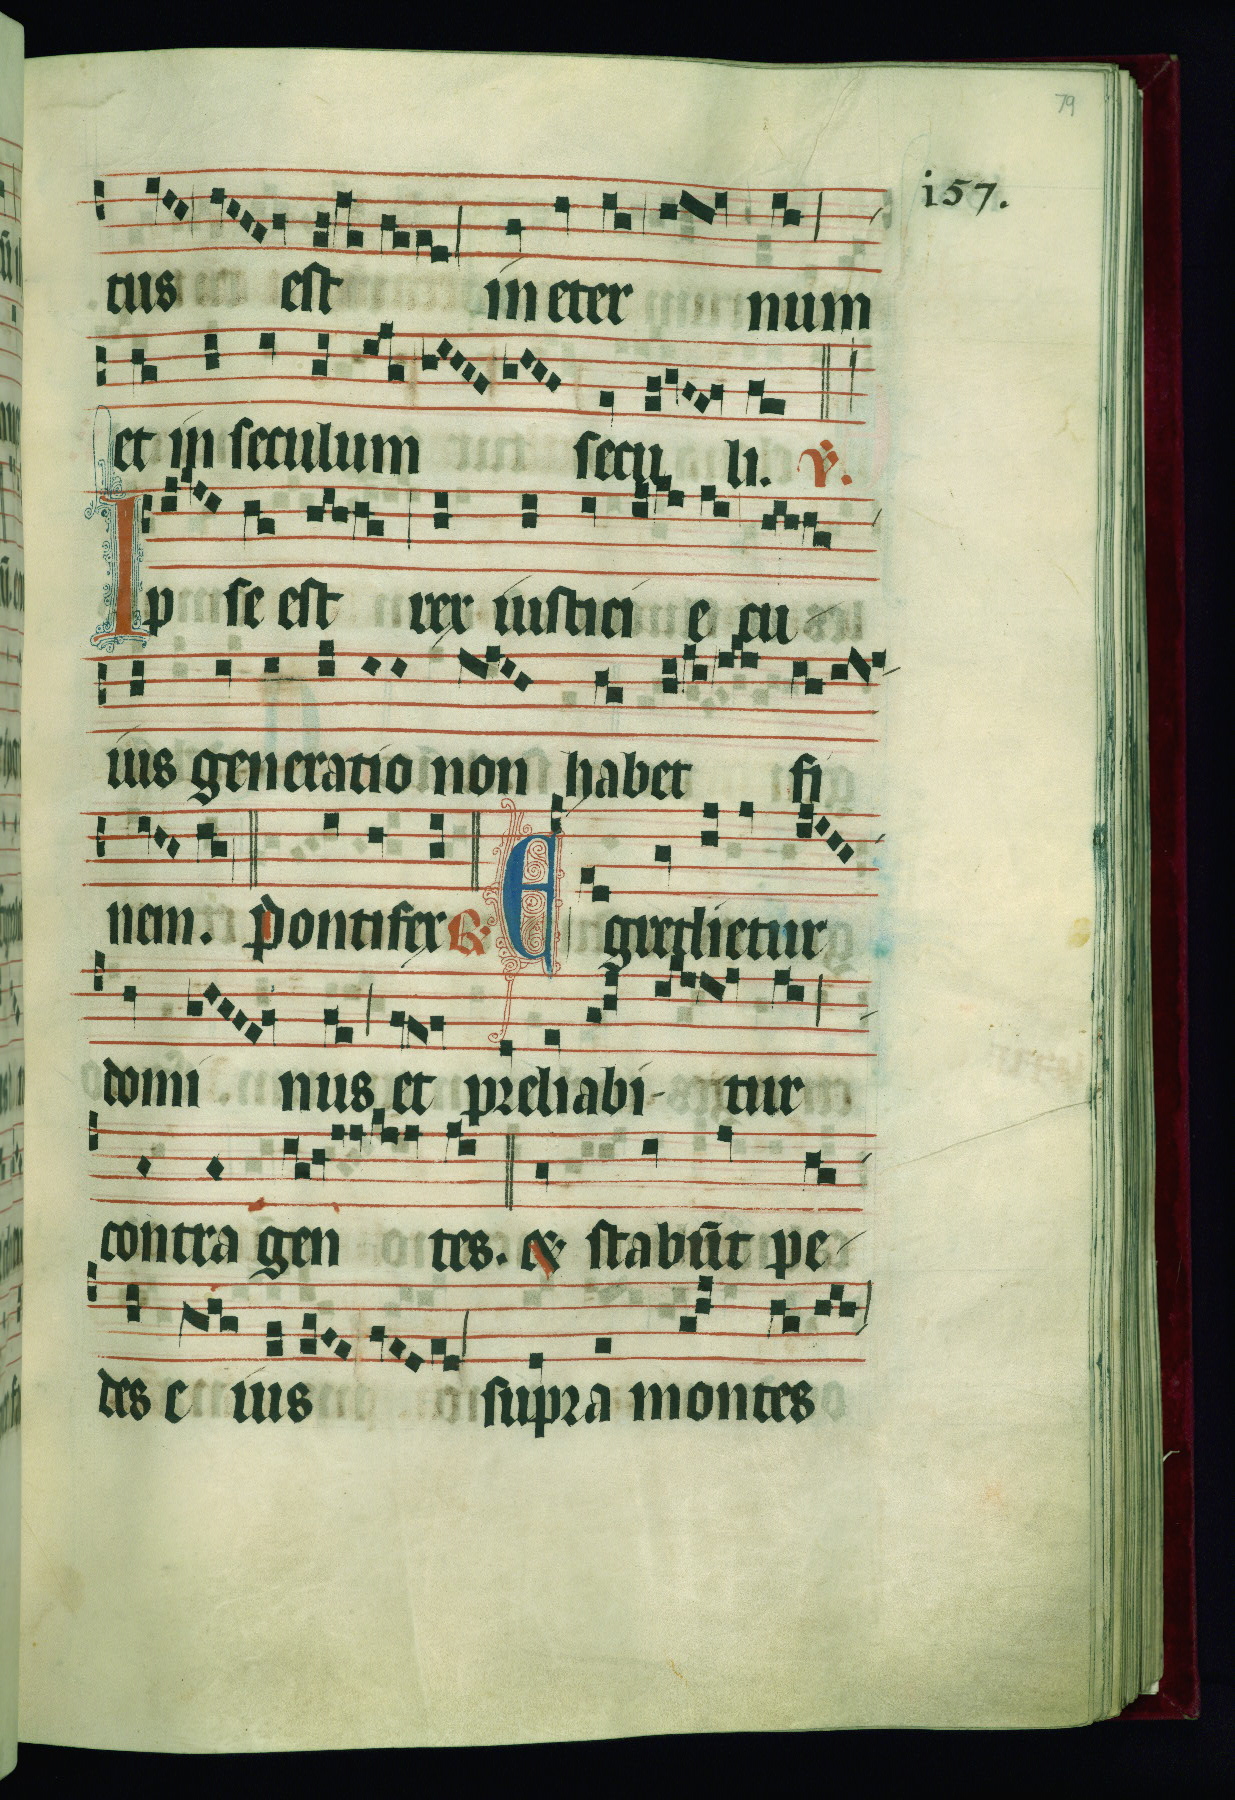 79
i57.
tus est in eter num
et in seculum secu li. ℣.
Ip se est rex iusticie cu
ius generatio non habet fi
nem. Pontifex ℟. Egredietur
domi nus et preliabi- tur
contra gen tes. & stabūt pe-
des e ius supra montes